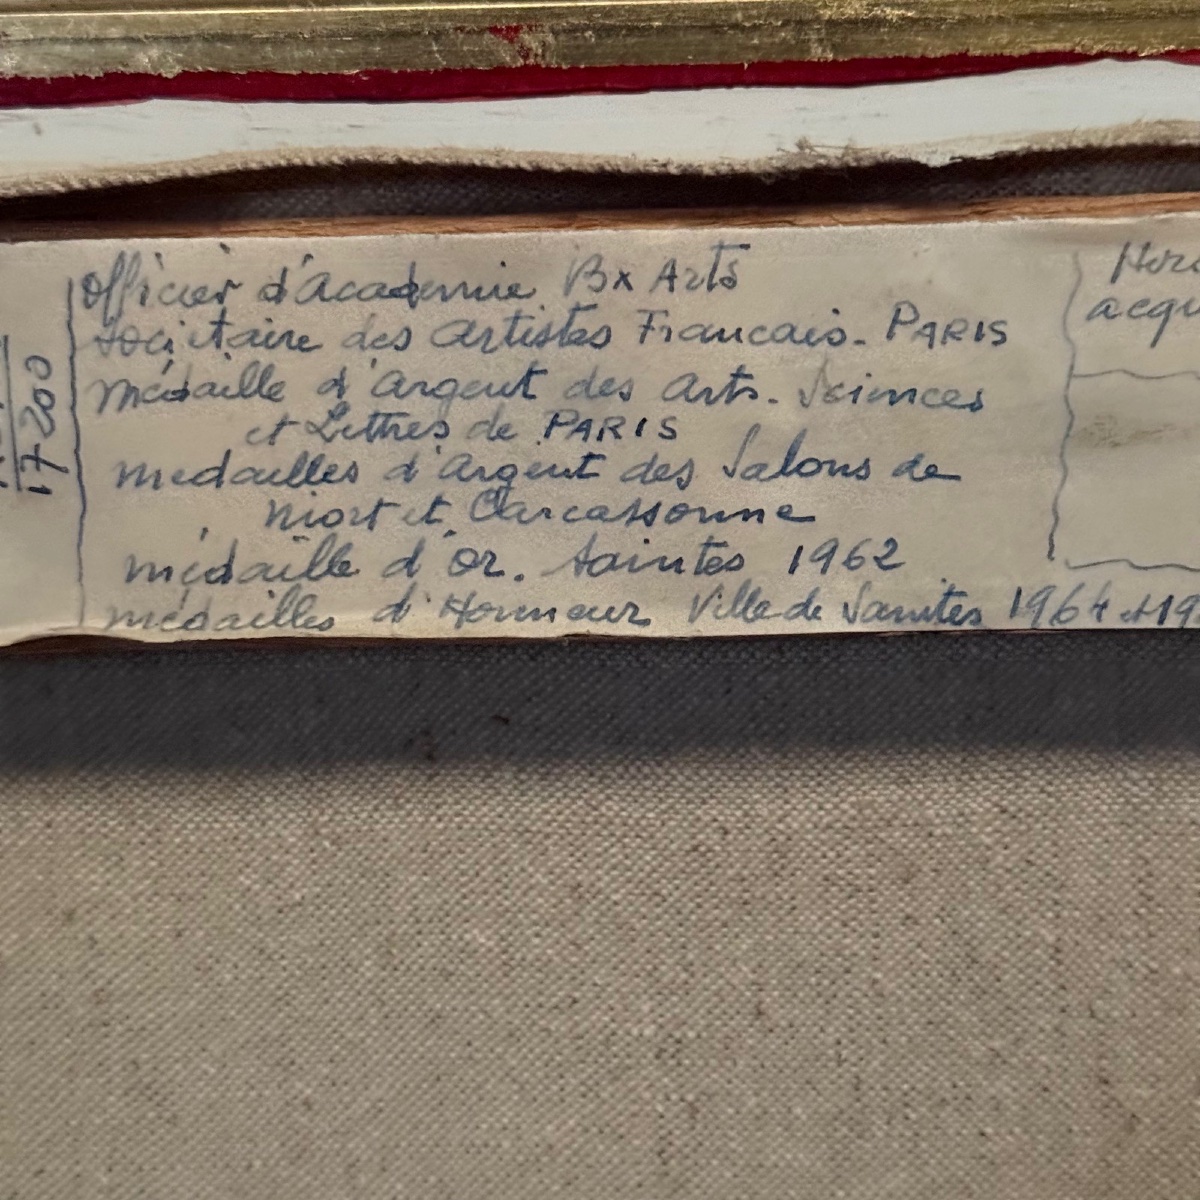 17200
Officier d'Academie Bx Arts
Sociitaire des Artistes Francais - PARIS
Médaille d'Argent des Arts - Sciences
et Lettres de PARIS
Medailles d'Argent des Salons de
Niort et Carcassonne
Médaille d'Or. Saintes 1962
Médailles d'Honneur Ville de Saintes 1964 et 19
Hors
acqu